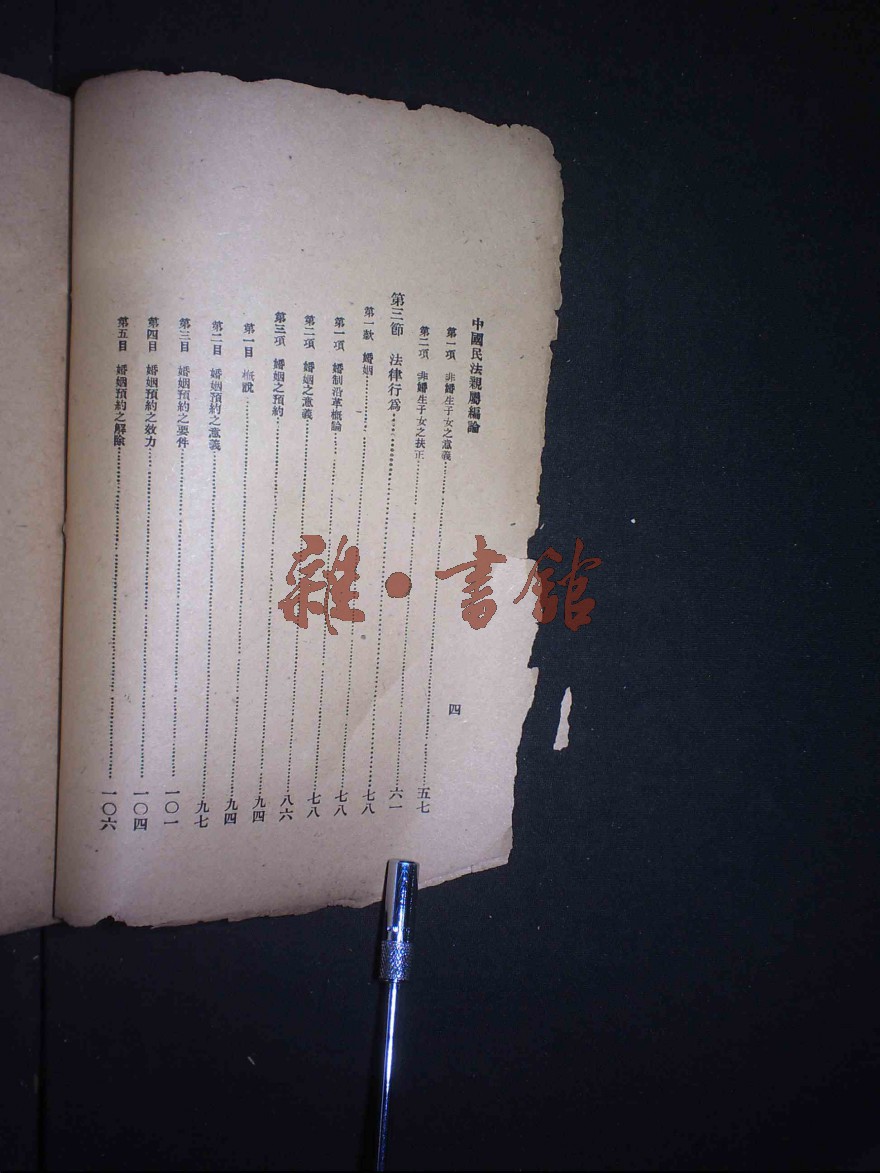 中國民法親屬編論 四
第一項 非婚生子女之意義……五七
第二項 非婚生子女之扶正……六一
第三節 法律行為……七八
第一款 婚姻……七八
第一項 婚制沿革概論……七八
第二項 婚姻之意義……八六
第三項 婚姻之預約……九四
第一目 概說……九四
第二目 婚姻預約之意義……九七
第三目 婚姻預約之要件……一〇一
第四目 婚姻預約之效力……一〇四
第五目 婚姻預約之解除……一〇六
雜·書館